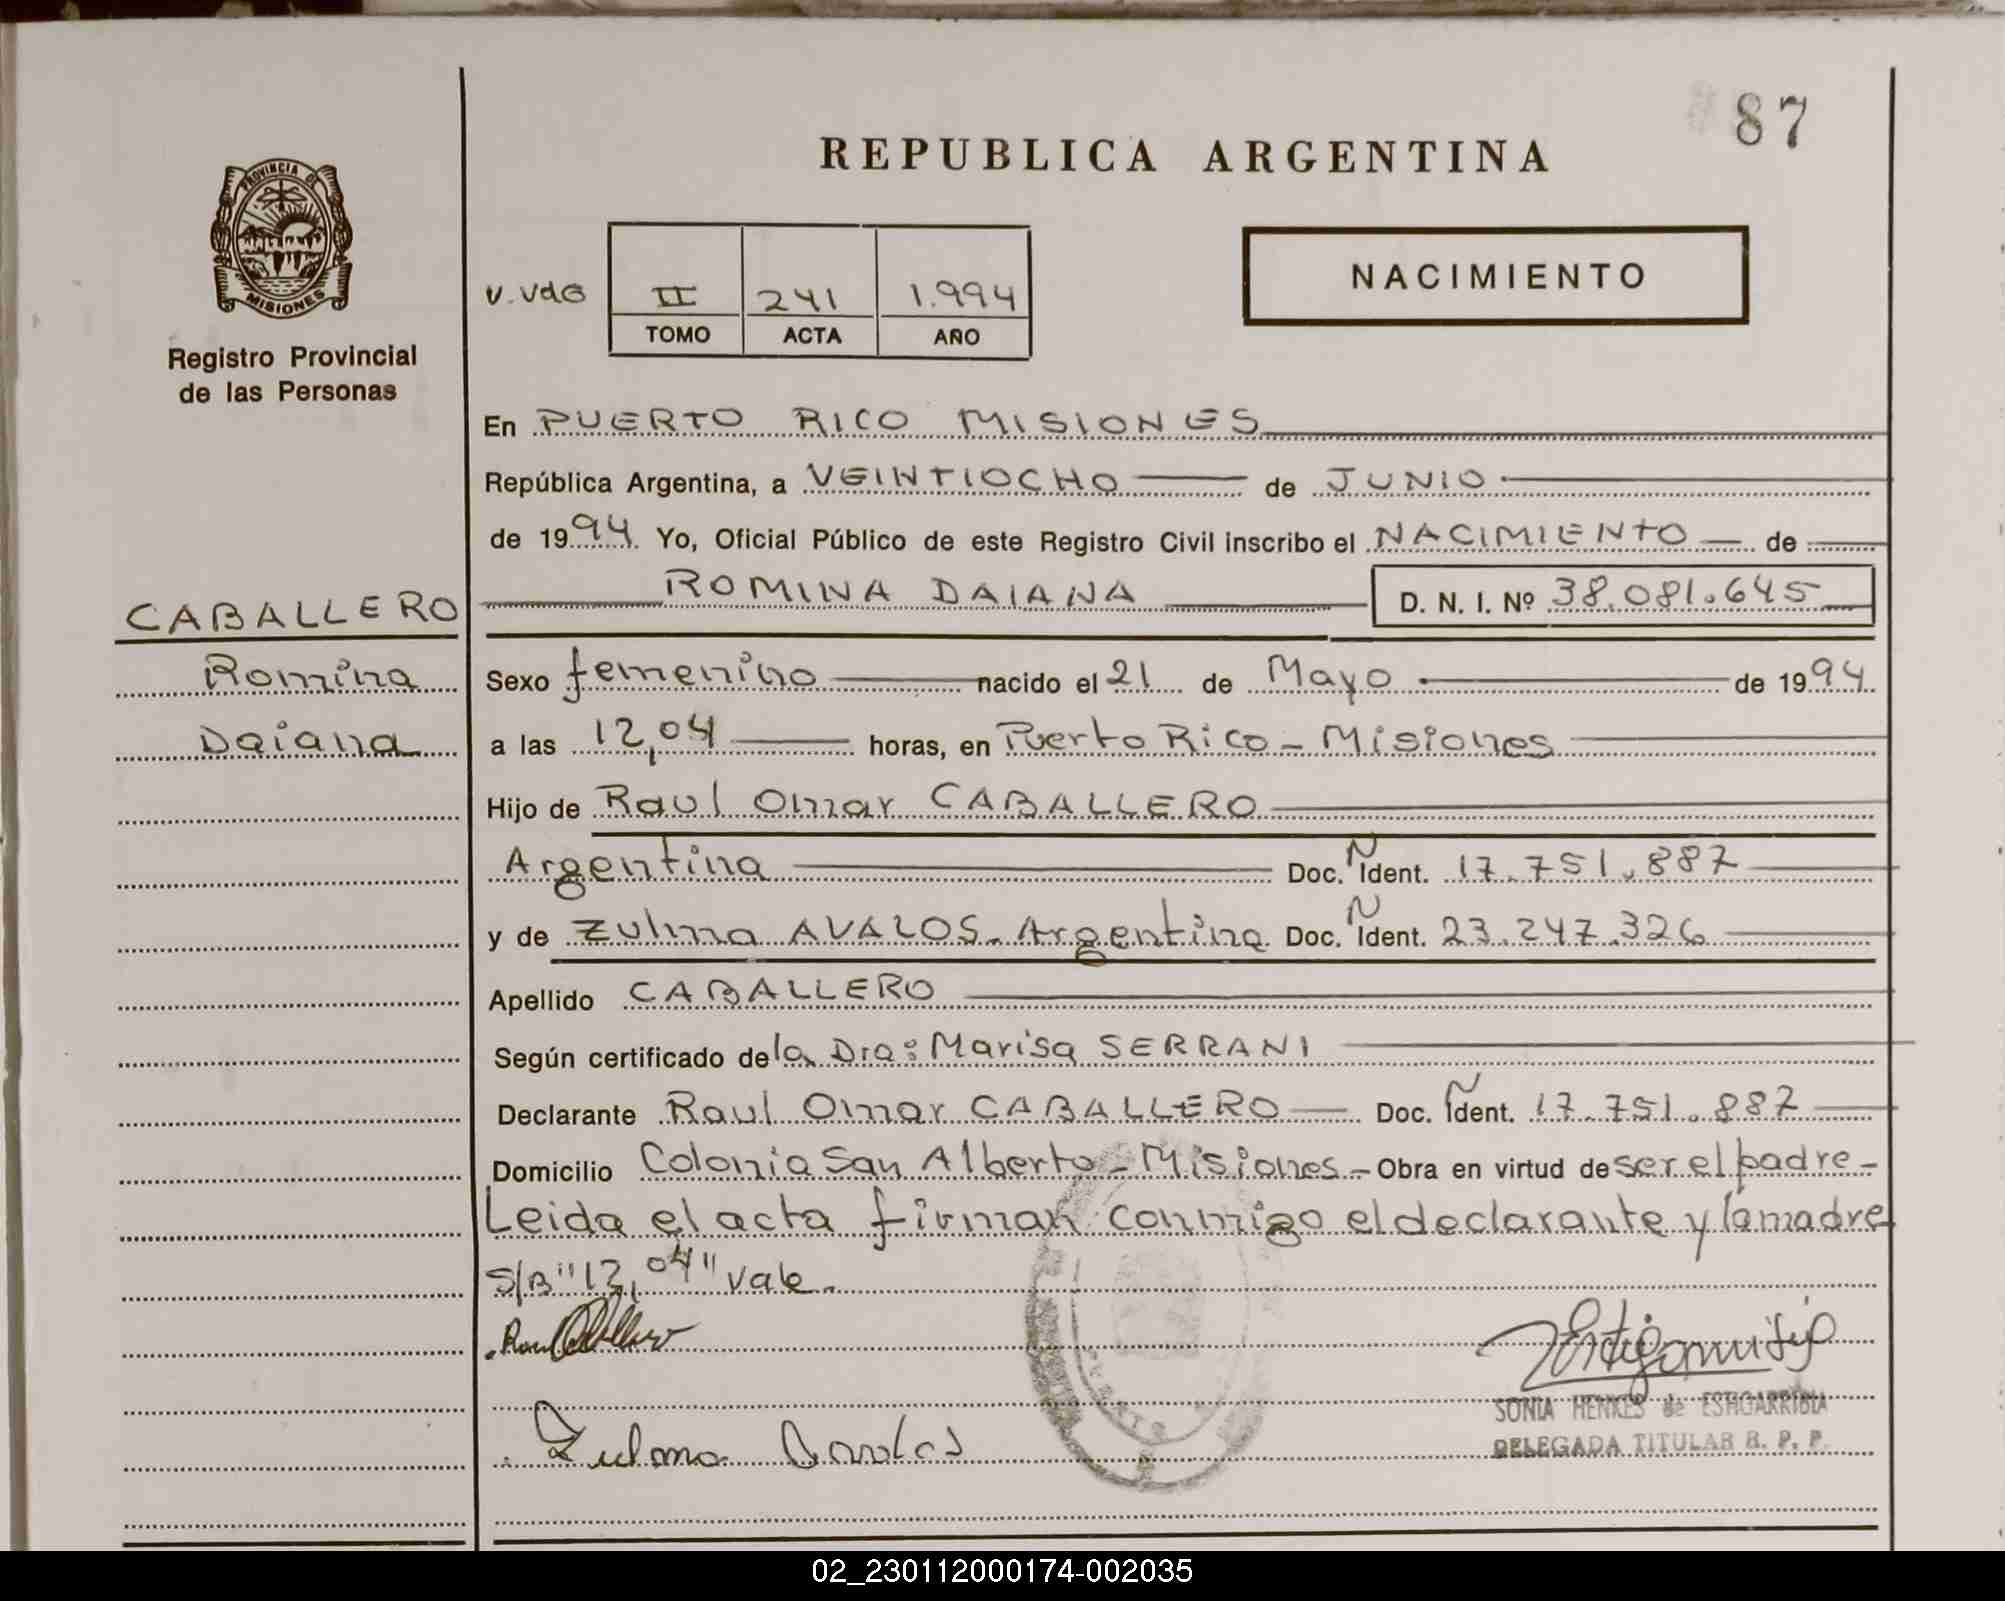 87
REPUBLICA ARGENTINA
PROVINCIA DE
MISIONES
Registro Provincial
de las Personas
NACIMIENTO
V.VdG II 241 1.994
TOMO ACTA AÑO
En PUERTO RICO MISIONES
República Argentina, a VEINTIOCHO de JUNIO
de 1994. Yo, Oficial Público de este Registro Civil inscribo el NACIMIENTO de
CABALLERO
ROMINA DAIANA D. N. I. Nº 38.081.645
Romina
Sexo femenino nacido el 21 de Mayo de 1994
Daiana
a las 12,04 horas, en Puerto Rico - Misiones
Hijo de Raul Omar CABALLERO
Argentina Doc. N Ident. 17.751.887
y de Zulma AVALOS. Argentina Doc. N Ident. 23.247.326
Apellido CABALLERO
Según certificado de la Dra: Marisa SERRANI
Declarante Raul Omar CABALLERO Doc. N Ident. 17.751.887
Domicilio Colonia San Alberto - Misiones - Obra en virtud de ser el padre -
Leida el acta firman conmigo el declarante y la madre
S/B "12,04" vale.
Raul Caballero
Zulma Avalos
SONIA HENKES de ESTIGARRIBIA
DELEGADA TITULAR R. P. P.
02_230112000174-002035